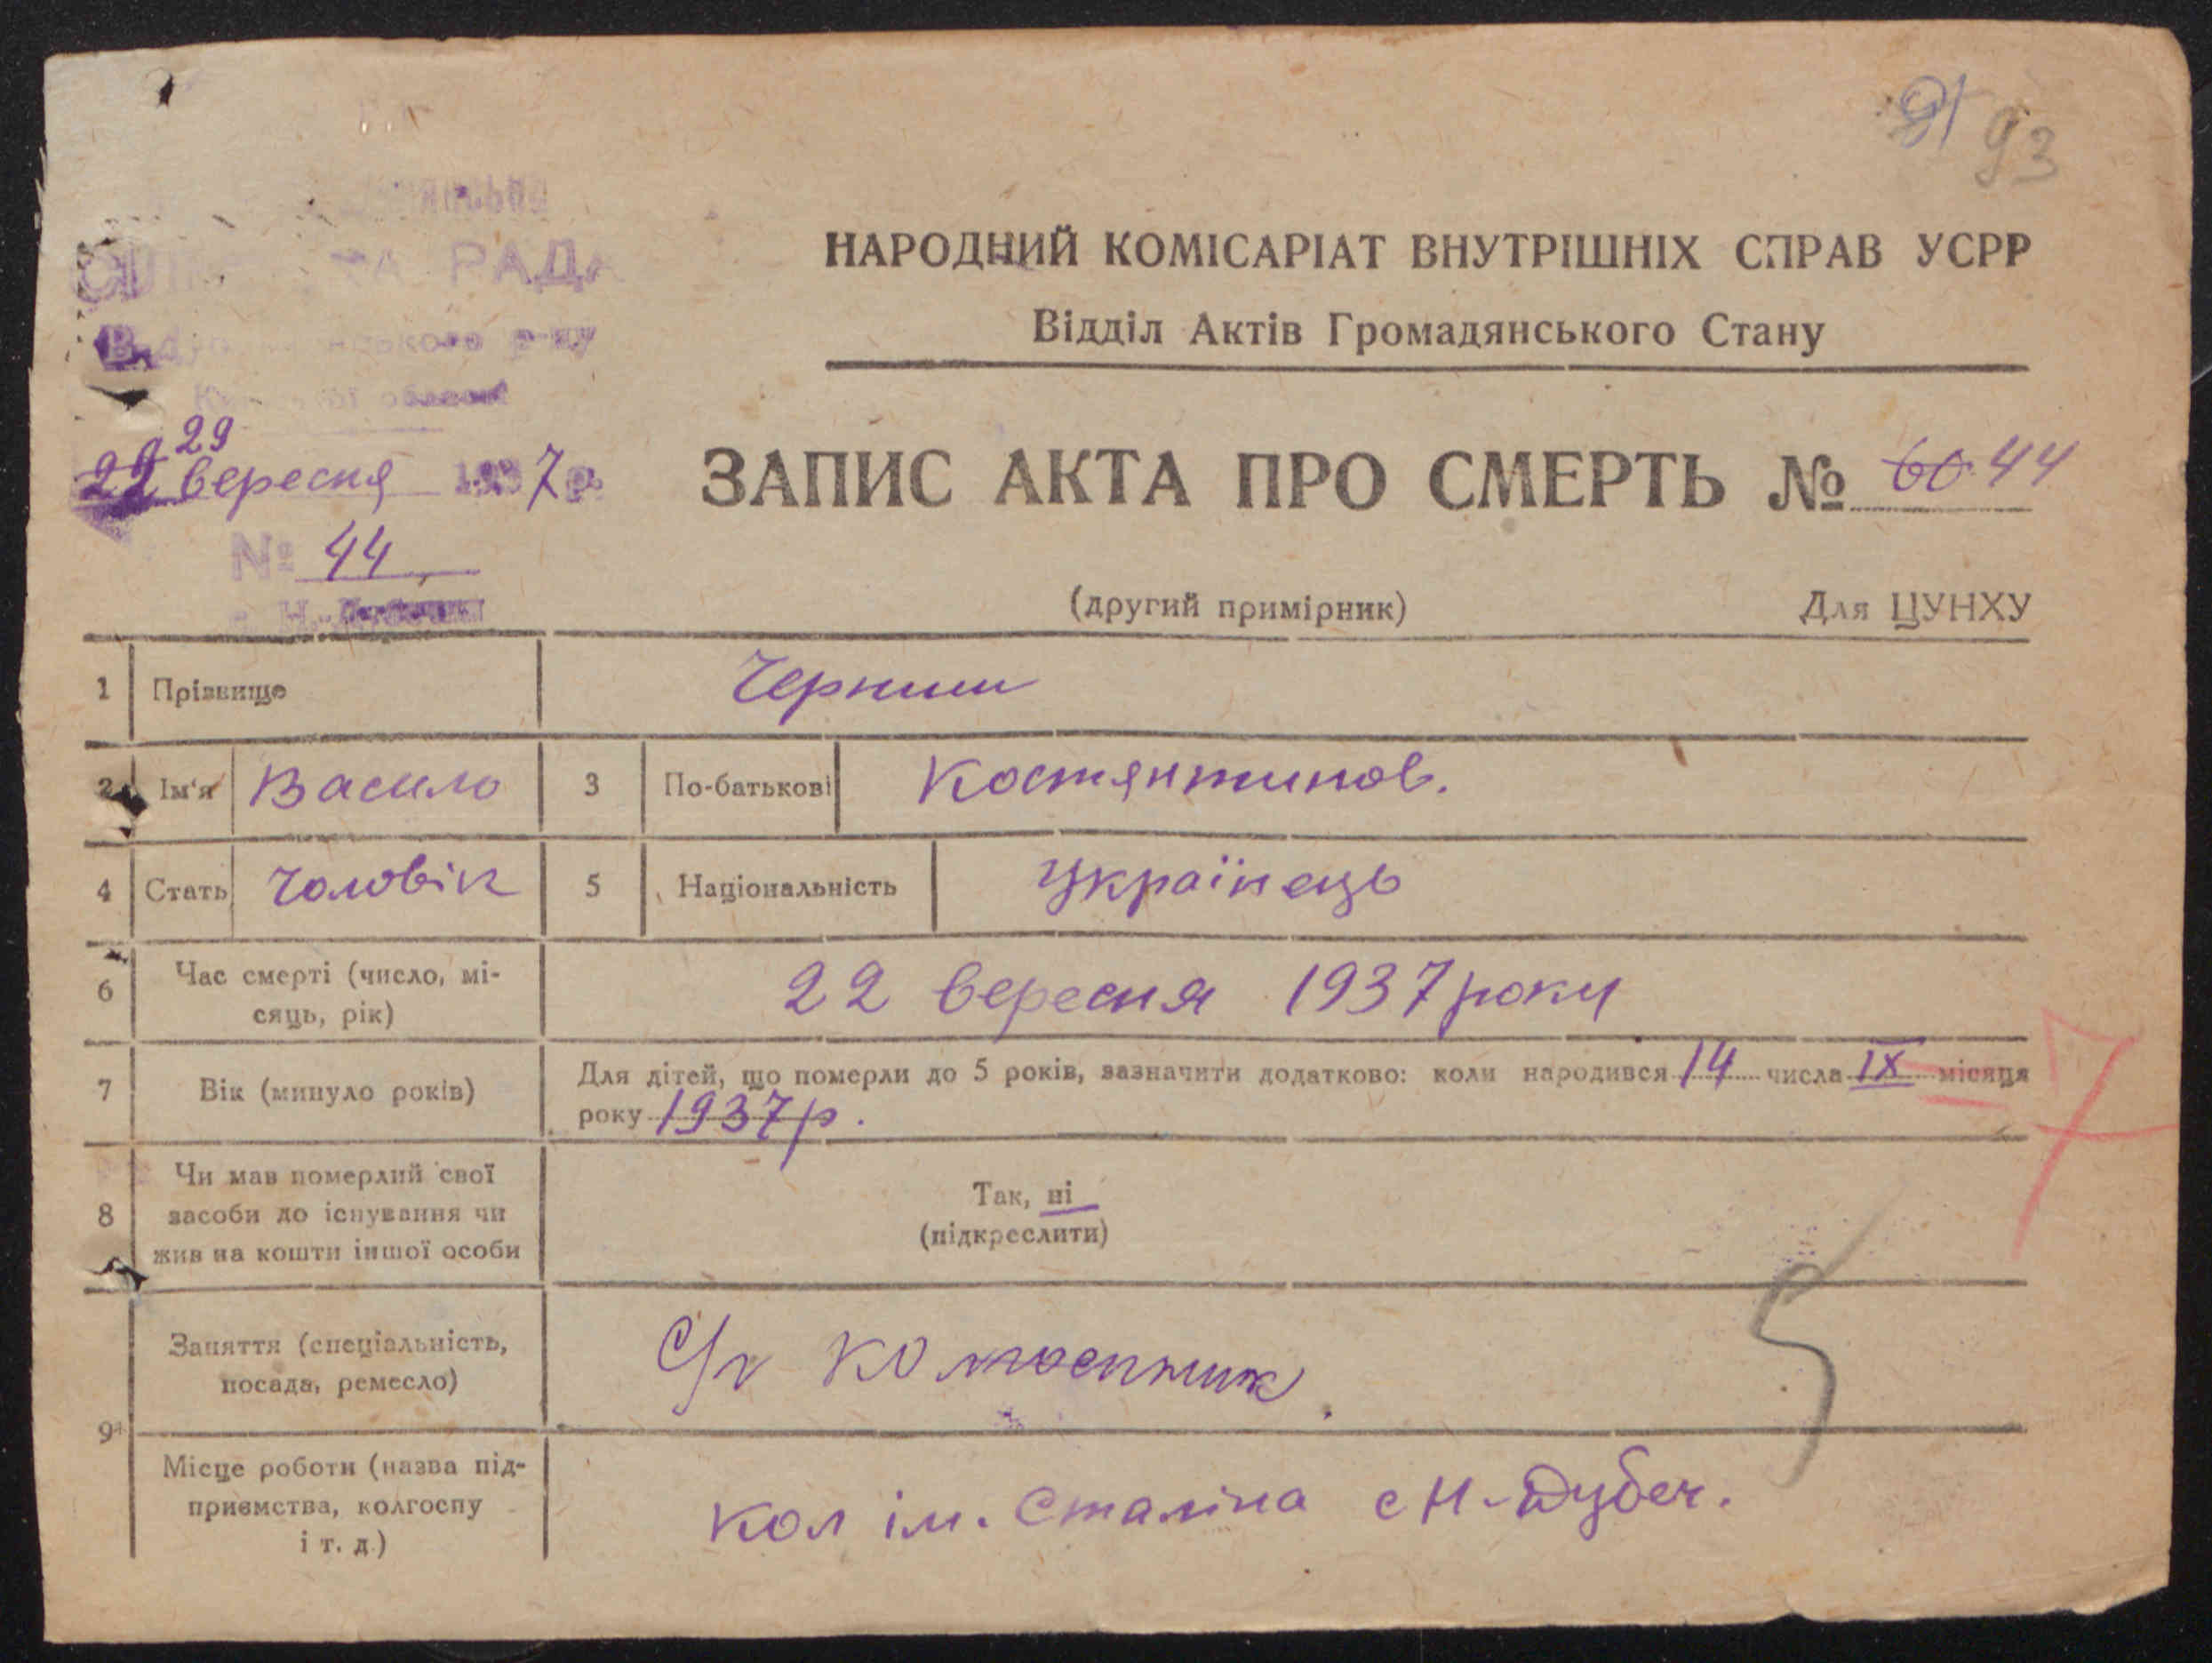 91 93
РАДА
області
НАРОДНИЙ КОМІСАРІАТ ВНУТРІШНІХ СПРАВ УСРР
Відділ Актів Громадянського Стану
29
22 вересня 1937 р.
ЗАПИС АКТА ПРО СМЕРТЬ № 60 44
№ 44
(другий примірник) Для ЦУНХУ
1 Прізвище Черниш
2 Ім'я Василь 3 По-батькові Костянтинов.
4 Стать Чоловік 5 Національність Українець
6 Час смерті (число, мі-
сяць, рік) 22 вересня 1937 року
7 Вік (минуло років) Для дітей, що померли до 5 років, зазначити додатково: коли народився 14 числа IX місяця
року 1937 р.
7
8 Чи мав померлий свої
засоби до існування чи
жив на кошти іншої особи
Так, ні
(підкреслити)
5
9 Заняття (спеціальність,
посада, ремесло) С/г колгоспник.
Місце роботи (назва під-
приємства, колгоспу
і т. д.) Кол ім. Сталіна с Н-Дубеч.